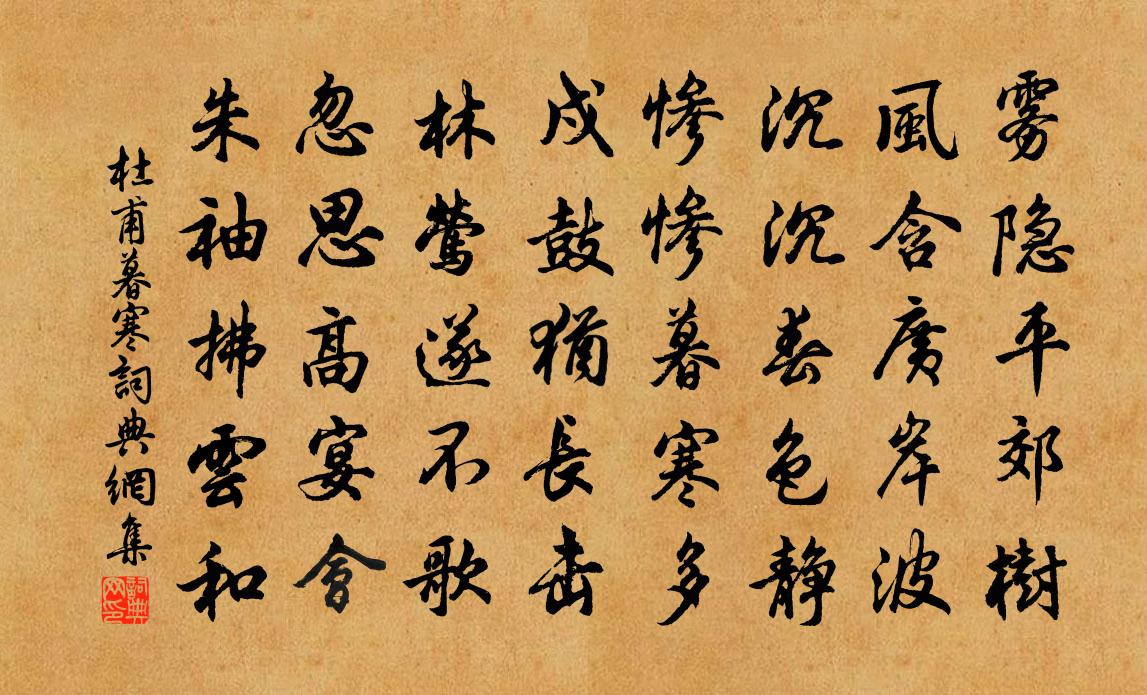 雾隐平郊樹
風含廣岸波
沉沉春色静
惨惨暮寒多
戍鼓猶長击
林莺遂不歌
忽思高宴會
朱袖拂雲和
杜甫暮寒詞典網集
詞典网印